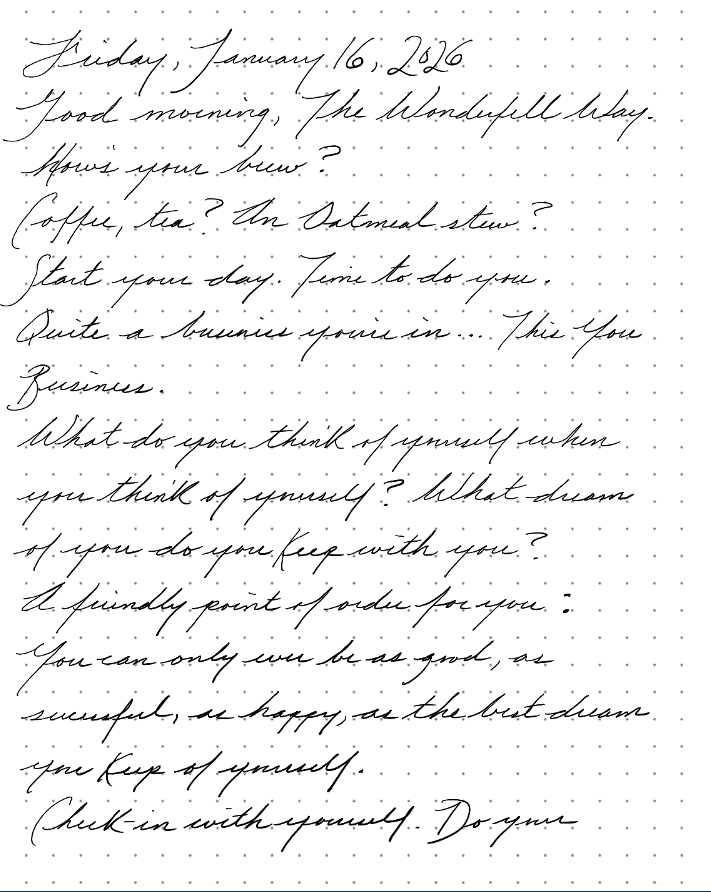 Friday, January 16, 2026
Good morning, The Wonderfull Way.
How's your brew?
Coffee, tea? An Oatmeal stew?
Start your day. Time to do you.
Quite a business you're in... This You
Business.
What do you think of yourself when
you think of yourself? What dream
of you do you keep with you?
A friendly point of order for you:
You can only ever be as good, as
sucessful, as happy, as the best dream
you keep of yourself.
Check-in with yourself. Do your